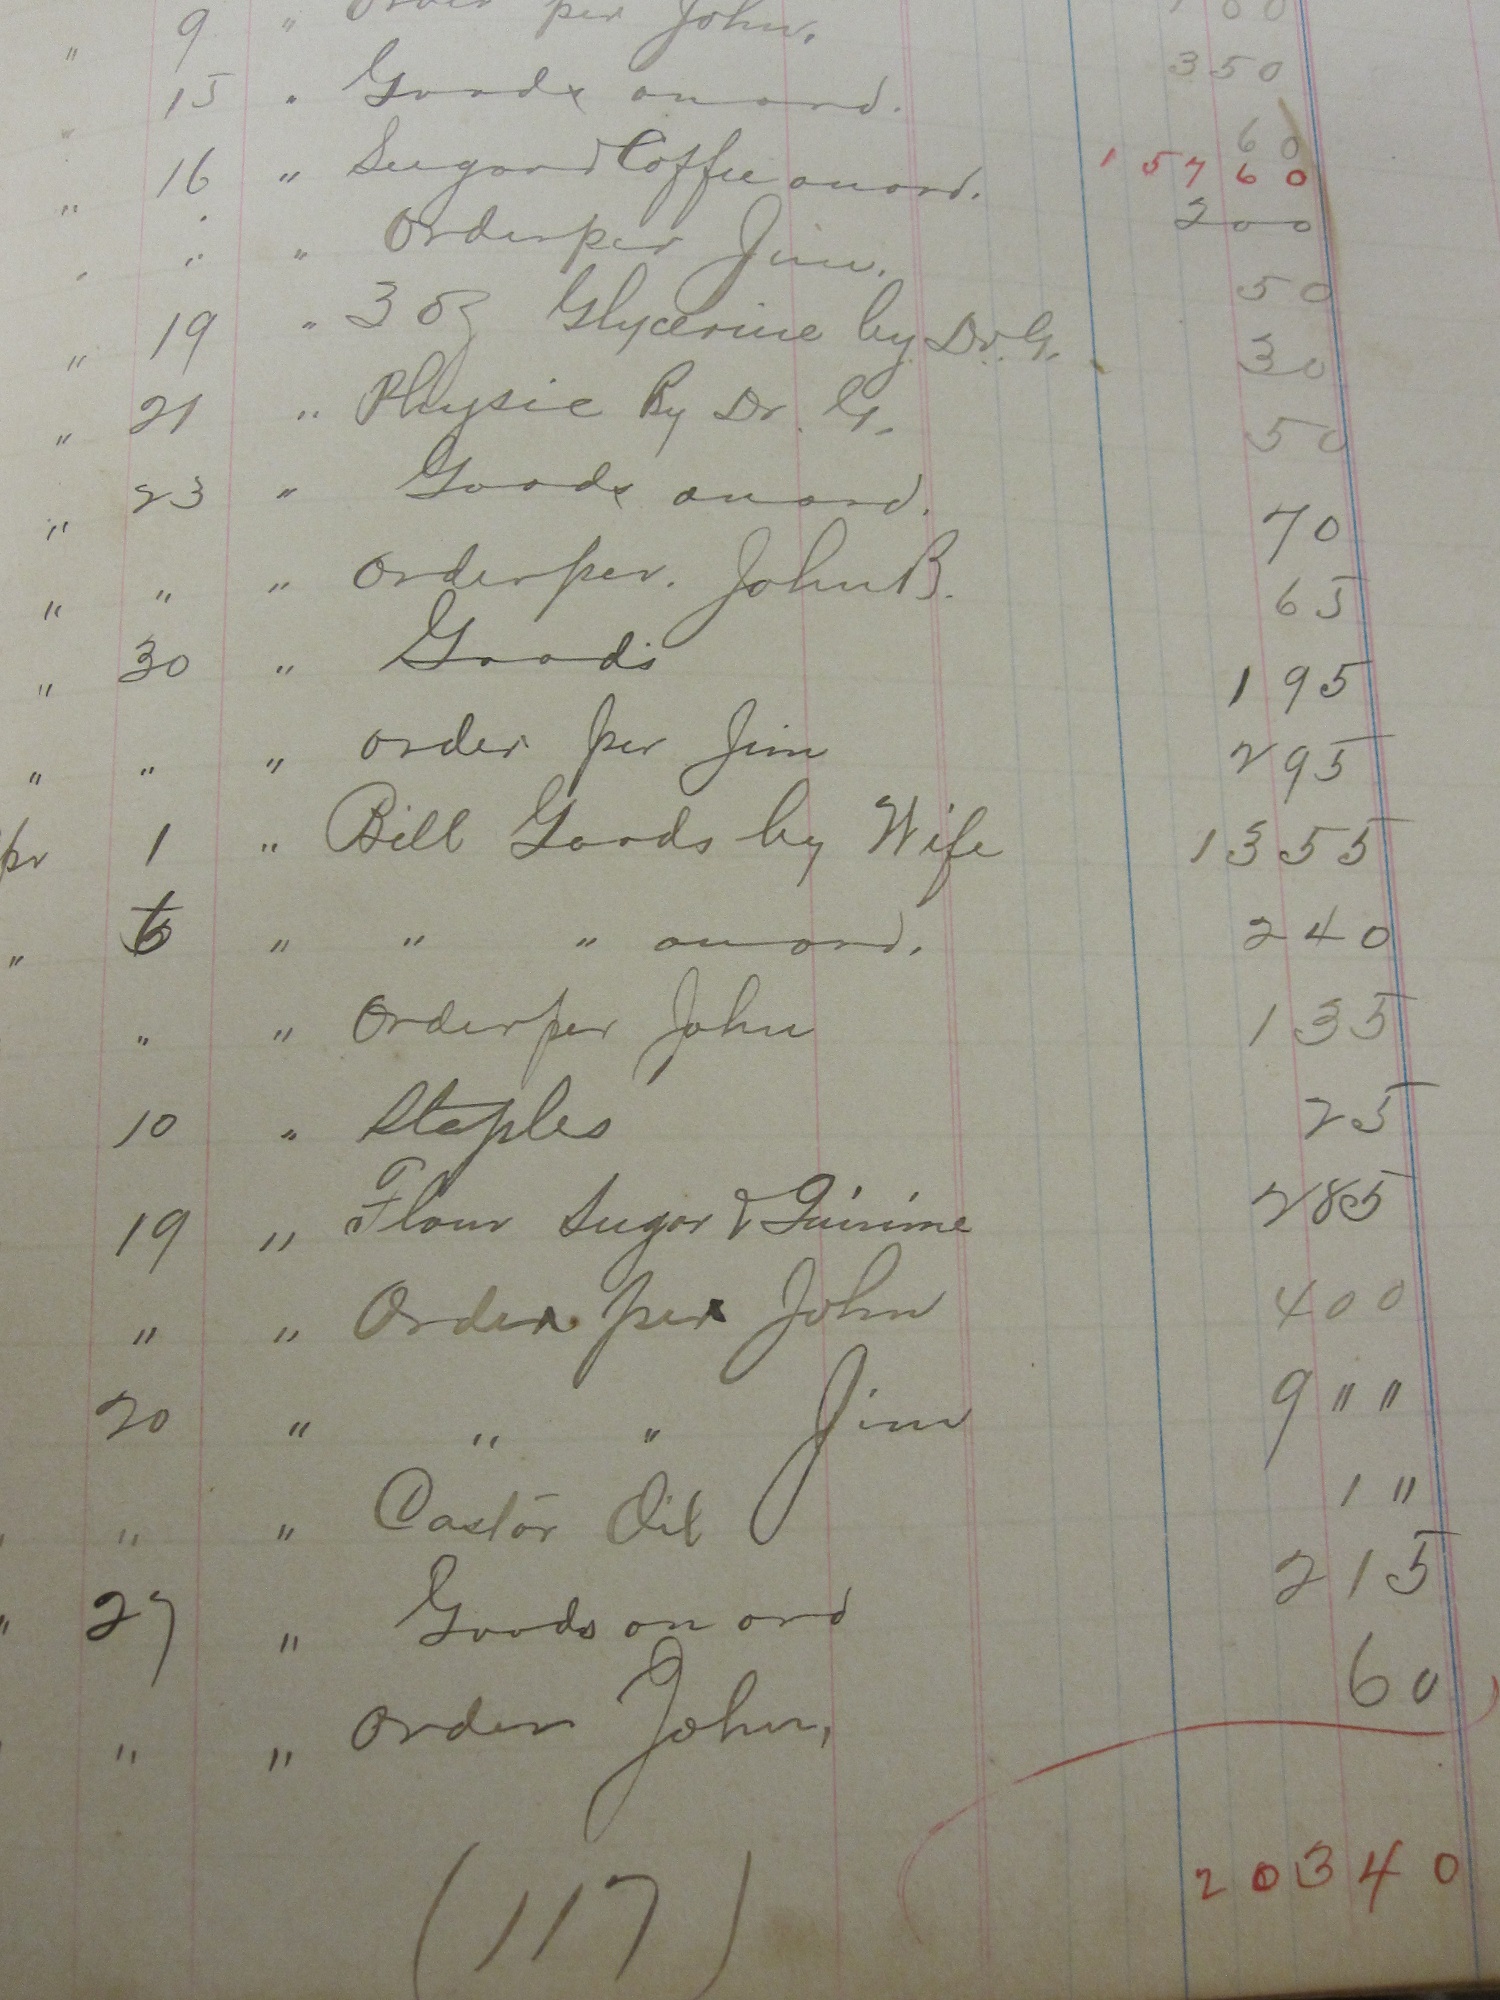 " 9 " Order per John. 1 00
" 15 " Goods on ord. 3 50
" 16 " Sugar and Coffee on ord. 60
1 5 7 6 0
" " " Order per Jim. 2 00
" 19 " 3 oz Glycerine by Dr. G. 50
" 21 " Physic By Dr. G. 30
" 23 " Goods on ord. 50
" " " Order per. John B. 70
" 30 " Goods 65
" " " order per Jim 1 95
2 95
pr 1 " Bill Goods by Wife 13 55
" 6 " " " on ord. 2 40
" " Order per John 1 35
10 " Staples 25
19 " Flour Sugar & Quinine 2 85
" " Order per John 4 00
20 " " " Jim 9 " "
" " " Castor Oil 1 "
" 27 " Goods on ord 2 15
" " " Order John, 60
2 0 3 4 0
(117)